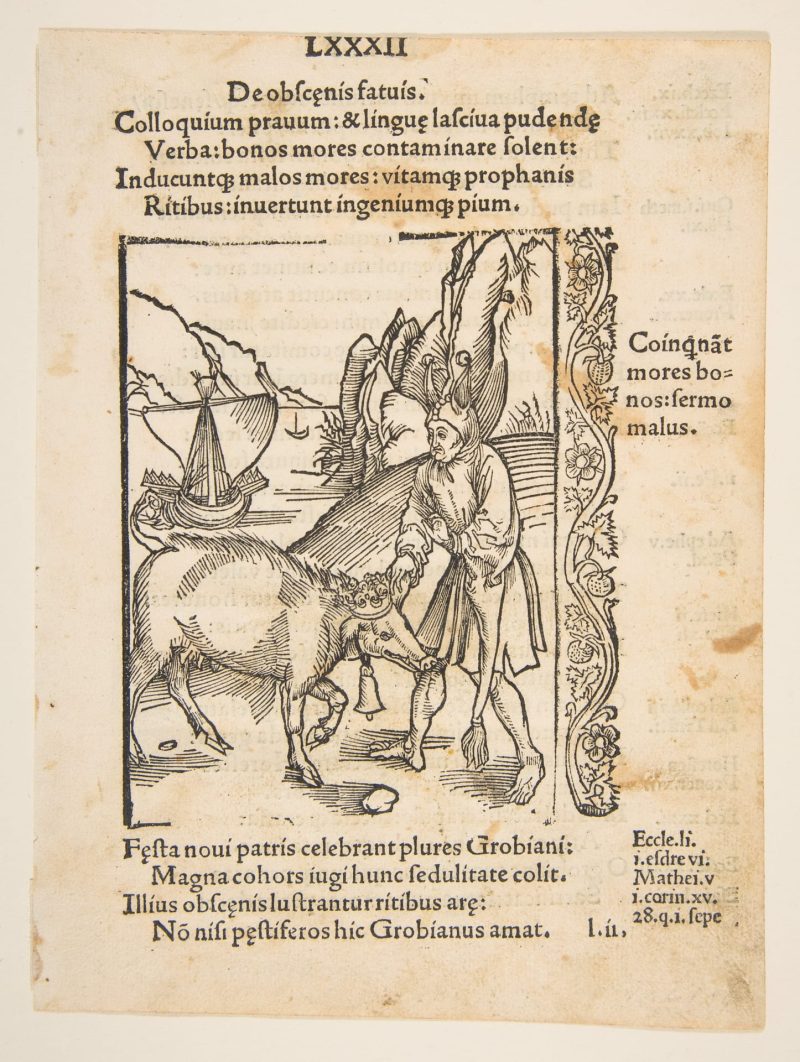 LXXXII
De obſcęnis fatuis.
Colloquium prauum: & linguę laſciua pudendę
Verba: bonos mores contaminare ſolent:
Inducuntqꝫ malos mores: vitamqꝫ prophanis
Ritibus: inuertunt ingeniumqꝫ pium.
Coinq̃nãt
mores bo=
nos: ſermo
malus.
Fęſta noui patris celebrant plures Grobiani:
Magna cohors iugi hunc ſedulitate colit.
Illius obſcęnis luſtrantur ritibus arę:
Nõ niſi pęſtiferos hic Grobianus amat.
l.ii,
Eccle.li.
i.eſdre vi.
Mathei.v
i.corin.xv.
28.q.i.ſepe